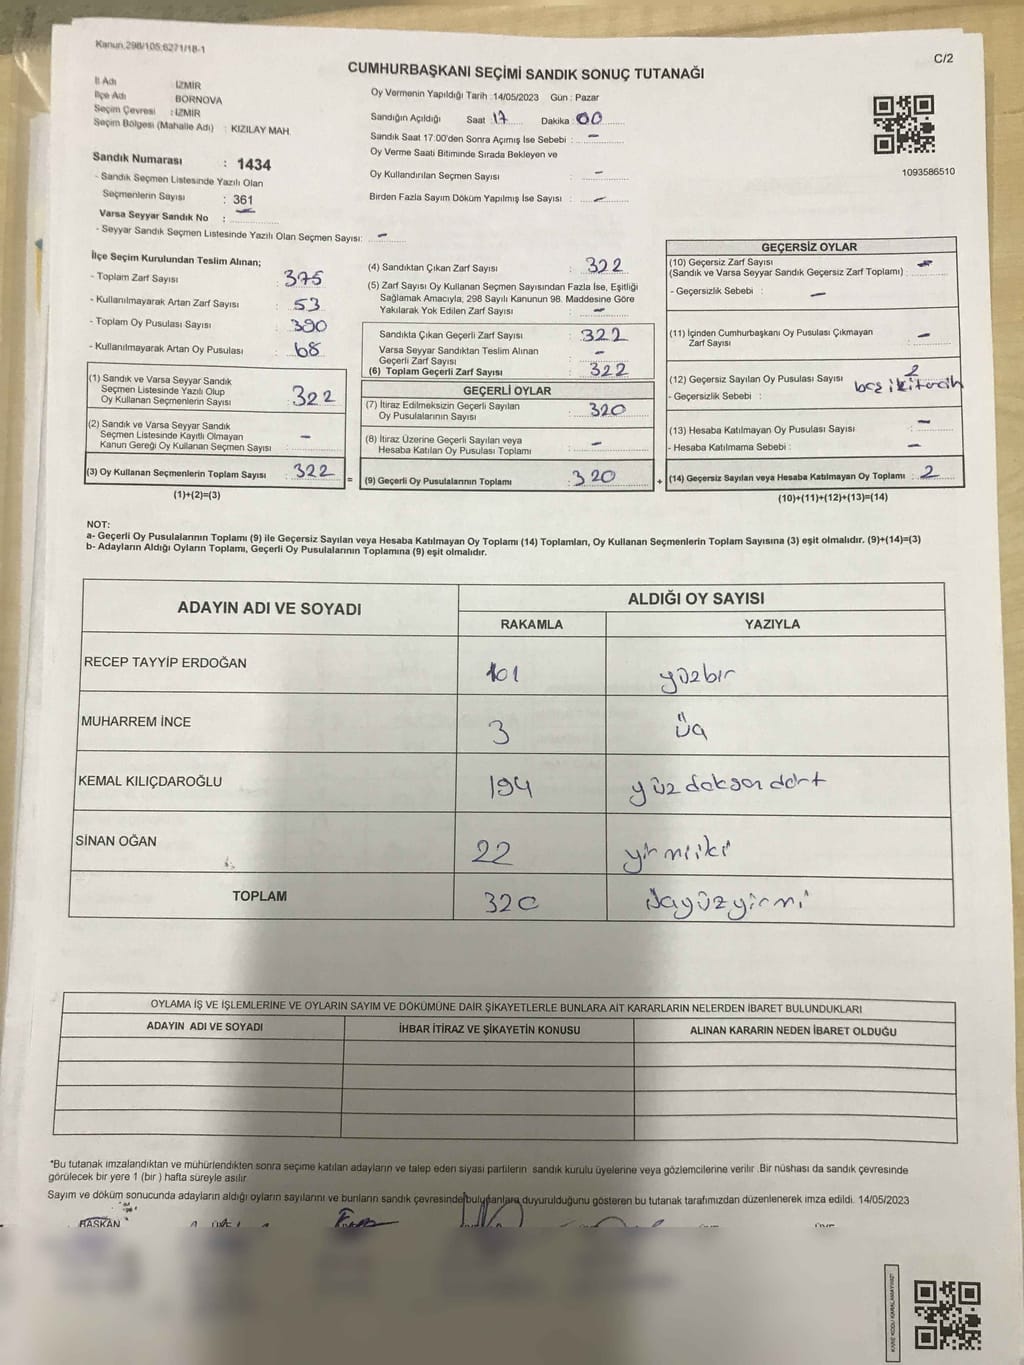 Kanun.298/105;6271/18-1
C/2
CUMHURBAŞKANI SEÇİMİ SANDIK SONUÇ TUTANAĞI
İl Adı : İZMİR
İlçe Adı : BORNOVA
Seçim Çevresi : İZMİR
Seçim Bölgesi (Mahalle Adı) : KIZILAY MAH.
Oy Vermenin Yapıldığı Tarih :14/05/2023 Gün : Pazar
Sandığın Açıldığı Saat 17 Dakika 00
Sandık Saat 17:00'den Sonra Açımış İse Sebebi : -
Oy Verme Saati Bitiminde Sırada Bekleyen ve
Oy Kullandırılan Seçmen Sayısı : -
Birden Fazla Sayım Döküm Yapılmış İse Sayısı : -
1093586510
Sandık Numarası : 1434
- Sandık Seçmen Listesinde Yazılı Olan
Seçmenlerin Sayısı : 361
Varsa Seyyar Sandık No : -
- Seyyar Sandık Seçmen Listesinde Yazılı Olan Seçmen Sayısı: -
İlçe Seçim Kurulundan Teslim Alınan;
- Toplam Zarf Sayısı : 375
- Kullanılmayarak Artan Zarf Sayısı : 53
- Toplam Oy Pusulası Sayısı : 390
- Kullanılmayarak Artan Oy Pusulası : 68
(1) Sandık ve Varsa Seyyar Sandık
Seçmen Listesinde Yazılı Olup
Oy Kullanan Seçmenlerin Sayısı : 322
(2) Sandık ve Varsa Seyyar Sandık
Seçmen Listesinde Kayıtlı Olmayan
Kanun Gereği Oy Kullanan Seçmen Sayısı : -
(3) Oy Kullanan Seçmenlerin Toplam Sayısı : 322
(1)+(2)=(3)
(4) Sandıktan Çıkan Zarf Sayısı : 322
(5) Zarf Sayısı Oy Kullanan Seçmen Sayısından Fazla İse, Eşitliği
Sağlamak Amacıyla, 298 Sayılı Kanunun 98. Maddesine Göre
Yakılarak Yok Edilen Zarf Sayısı : -
Sandıkta Çıkan Geçerli Zarf Sayısı : 322
Varsa Seyyar Sandıktan Teslim Alınan
Geçerli Zarf Sayısı : -
(6) Toplam Geçerli Zarf Sayısı : 322
GEÇERLİ OYLAR
(7) İtiraz Edilmeksizin Geçerli Sayılan
Oy Pusulalarının Sayısı : 320
(8) İtiraz Üzerine Geçerli Sayılan veya
Hesaba Katılan Oy Pusulası Toplamı : -
= (9) Geçerli Oy Pusulalarının Toplamı : 320
GEÇERSİZ OYLAR
(10) Geçersiz Zarf Sayısı
(Sandık ve Varsa Seyyar Sandık Geçersiz Zarf Toplamı) : -
- Geçersizlik Sebebi : -
(11) İçinden Cumhurbaşkanı Oy Pusulası Çıkmayan
Zarf Sayısı : -
(12) Geçersiz Sayılan Oy Pusulası Sayısı : 2
- Geçersizlik Sebebi :
(13) Hesaba Katılmayan Oy Pusulası Sayısı : -
- Hesaba Katılmama Sebebi : -
+ (14) Geçersiz Sayılan veya Hesaba Katılmayan Oy Toplamı : 2
(10)+(11)+(12)+(13)=(14)
NOT:
a- Geçerli Oy Pusulalarının Toplamı (9) ile Geçersiz Sayılan veya Hesaba Katılmayan Oy Toplamı (14) Toplamları, Oy Kullanan Seçmenlerin Toplam Sayısına (3) eşit olmalıdır. (9)+(14)=(3)
b- Adayların Aldığı Oyların Toplamı, Geçerli Oy Pusulalarının Toplamına (9) eşit olmalıdır.
ADAYIN ADI VE SOYADI
ALDIĞI OY SAYISI
RAKAMLA YAZIYLA
RECEP TAYYİP ERDOĞAN 101 yüzbir
MUHARREM İNCE 3 üç
KEMAL KILIÇDAROĞLU 194 yüz doksan dört
SİNAN OĞAN 22 yirmiiki
TOPLAM 320 üçyüzyirmi
OYLAMA İŞ VE İŞLEMLERİNE VE OYLARIN SAYIM VE DÖKÜMÜNE DAİR ŞİKAYETLERLE BUNLARA AİT KARARLARIN NELERDEN İBARET BULUNDUKLARI
ADAYIN ADI VE SOYADI İHBAR İTİRAZ VE ŞİKAYETİN KONUSU ALINAN KARARIN NEDEN İBARET OLDUĞU
*Bu tutanak imzalandıktan ve mühürlendikten sonra seçime katılan adayların ve talep eden siyasi partilerin sandık kurulu üyelerine veya gözlemcilerine verilir .Bir nüshası da sandık çevresinde
görülecek bir yere 1 (bir ) hafta süreyle asılır.
Sayım ve döküm sonucunda adayların aldığı oyların sayılarını ve bunların sandık çevresinde bulunanlara duyurulduğunu gösteren bu tutanak tarafımızdan düzenlenerek imza edildi. 14/05/2023
BAŞKAN